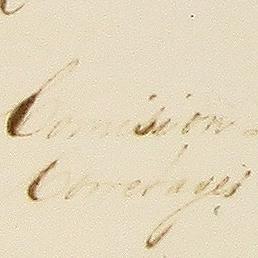 Comision
Corretages